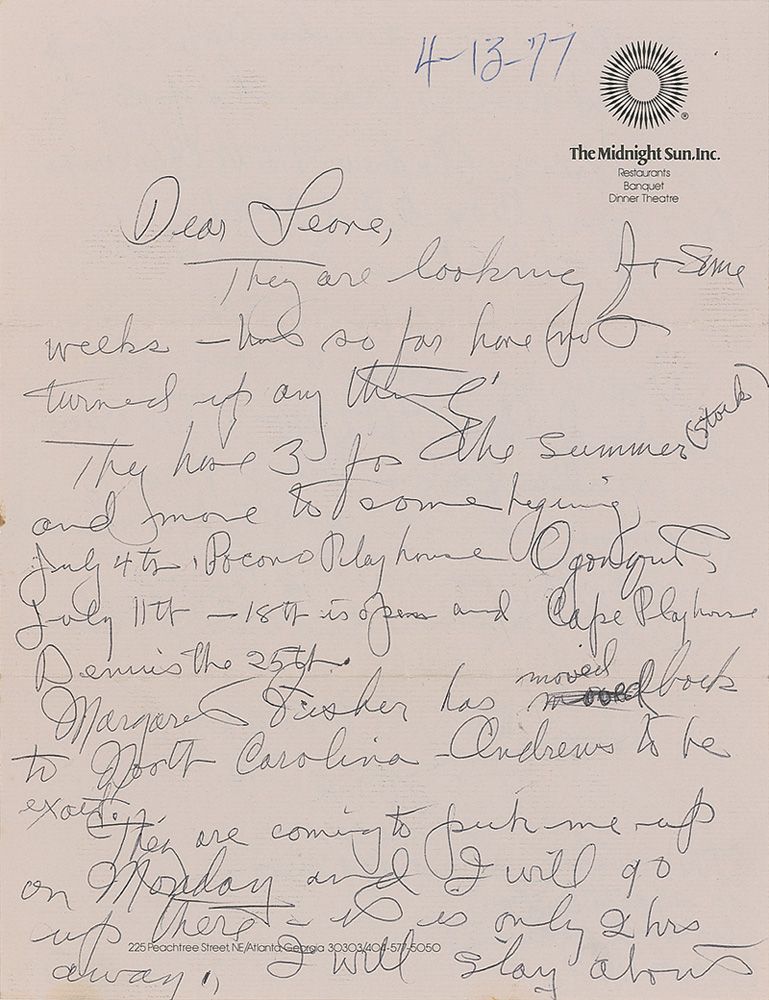 4-13-77
The Midnight Sun, Inc.
Restaurants
Banquet
Dinner Theatre
Dear Leone,
They are looking for some
weeks - but so far have not
turned up any thing.
They have 3 for the summer (stock)
and more to some beginning
July 4th, Pocono Playhouse Ogonquit
July 11th - 18th is open and Cape Playhouse
Dennis the 25th.
Margaret has moved back
to North Carolina - Andrews to be
exact.
They are coming to pick me up
on Monday and I will go
up there - it is only 2 hrs
225 Peachtree Street, NE/Atlanta, Georgia 30303/404-577-5050
away. I will stay about